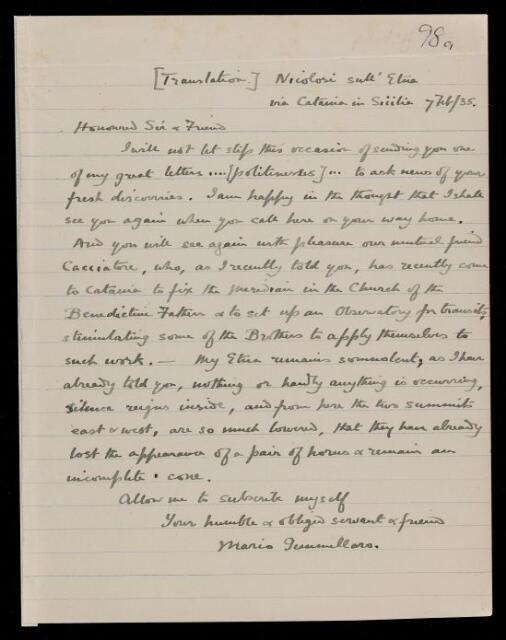 98a
[Translation.] Nicolosi sull' Etna
via Catania in Sicilia 7 Feb/35.
Honoured Sir & Friend
I will not let slip this occasion of sending you one
of my great letters ....[politenesses]... to ask news of your
fresh discoveries. I am happy in the thought that I shall
see you again when you call here on your way home.
And you will see again with pleasure our mutual friend
Cacciatore, who, as I recently told you, has recently come
to Catania to fix the meridian in the Church of the
Benedictine Fathers & to set up an Observatory for transits,
stimulating some of the Brothers to apply themselves to
such work. — My Etna remains somnolent, as I have
already told you, nothing or hardly anything is occurring,
silence reigns inside, and from here the two summits
east & west, are so much lowered, that they have already
lost the appearance of a pair of horns & remain an
incomplete cone.
Allow me to subscribe myself
Your humble & obliged servant & friend
Mario Gemmellaro.